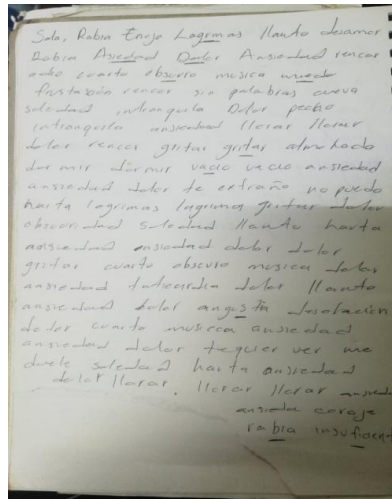 Sola, Rabia Enojo Lagrimas llanto desamor
Rabia Asiedad Dolor Ansiedad rencor
odio cuarto obscuro musica miedo
frustasión rencor sin palabras cueva
soledad intranquila Dolor pecho
intranquila ansiedad llorar llorar
dolor rencor gritar gritar almohada
dormir dormir vacio vacio ansiedad
ansiedad dolor te extraño no puedo
harta lagrimas lagrimas gritar dolor
obscuridad soledad llanto harta
ansiedad ansiedad dolor dolor
gritar cuarto obscuro musica dolor
ansiedad dolor llanto
ansiedad dolor angustia desolación
dolor cuarto musica ansiedad
ansiedad dolor ver me
duele soledad harta ansiedad
dolor llorar. llorar llorar ansiedad
ansieda coraje
rabia insuficient